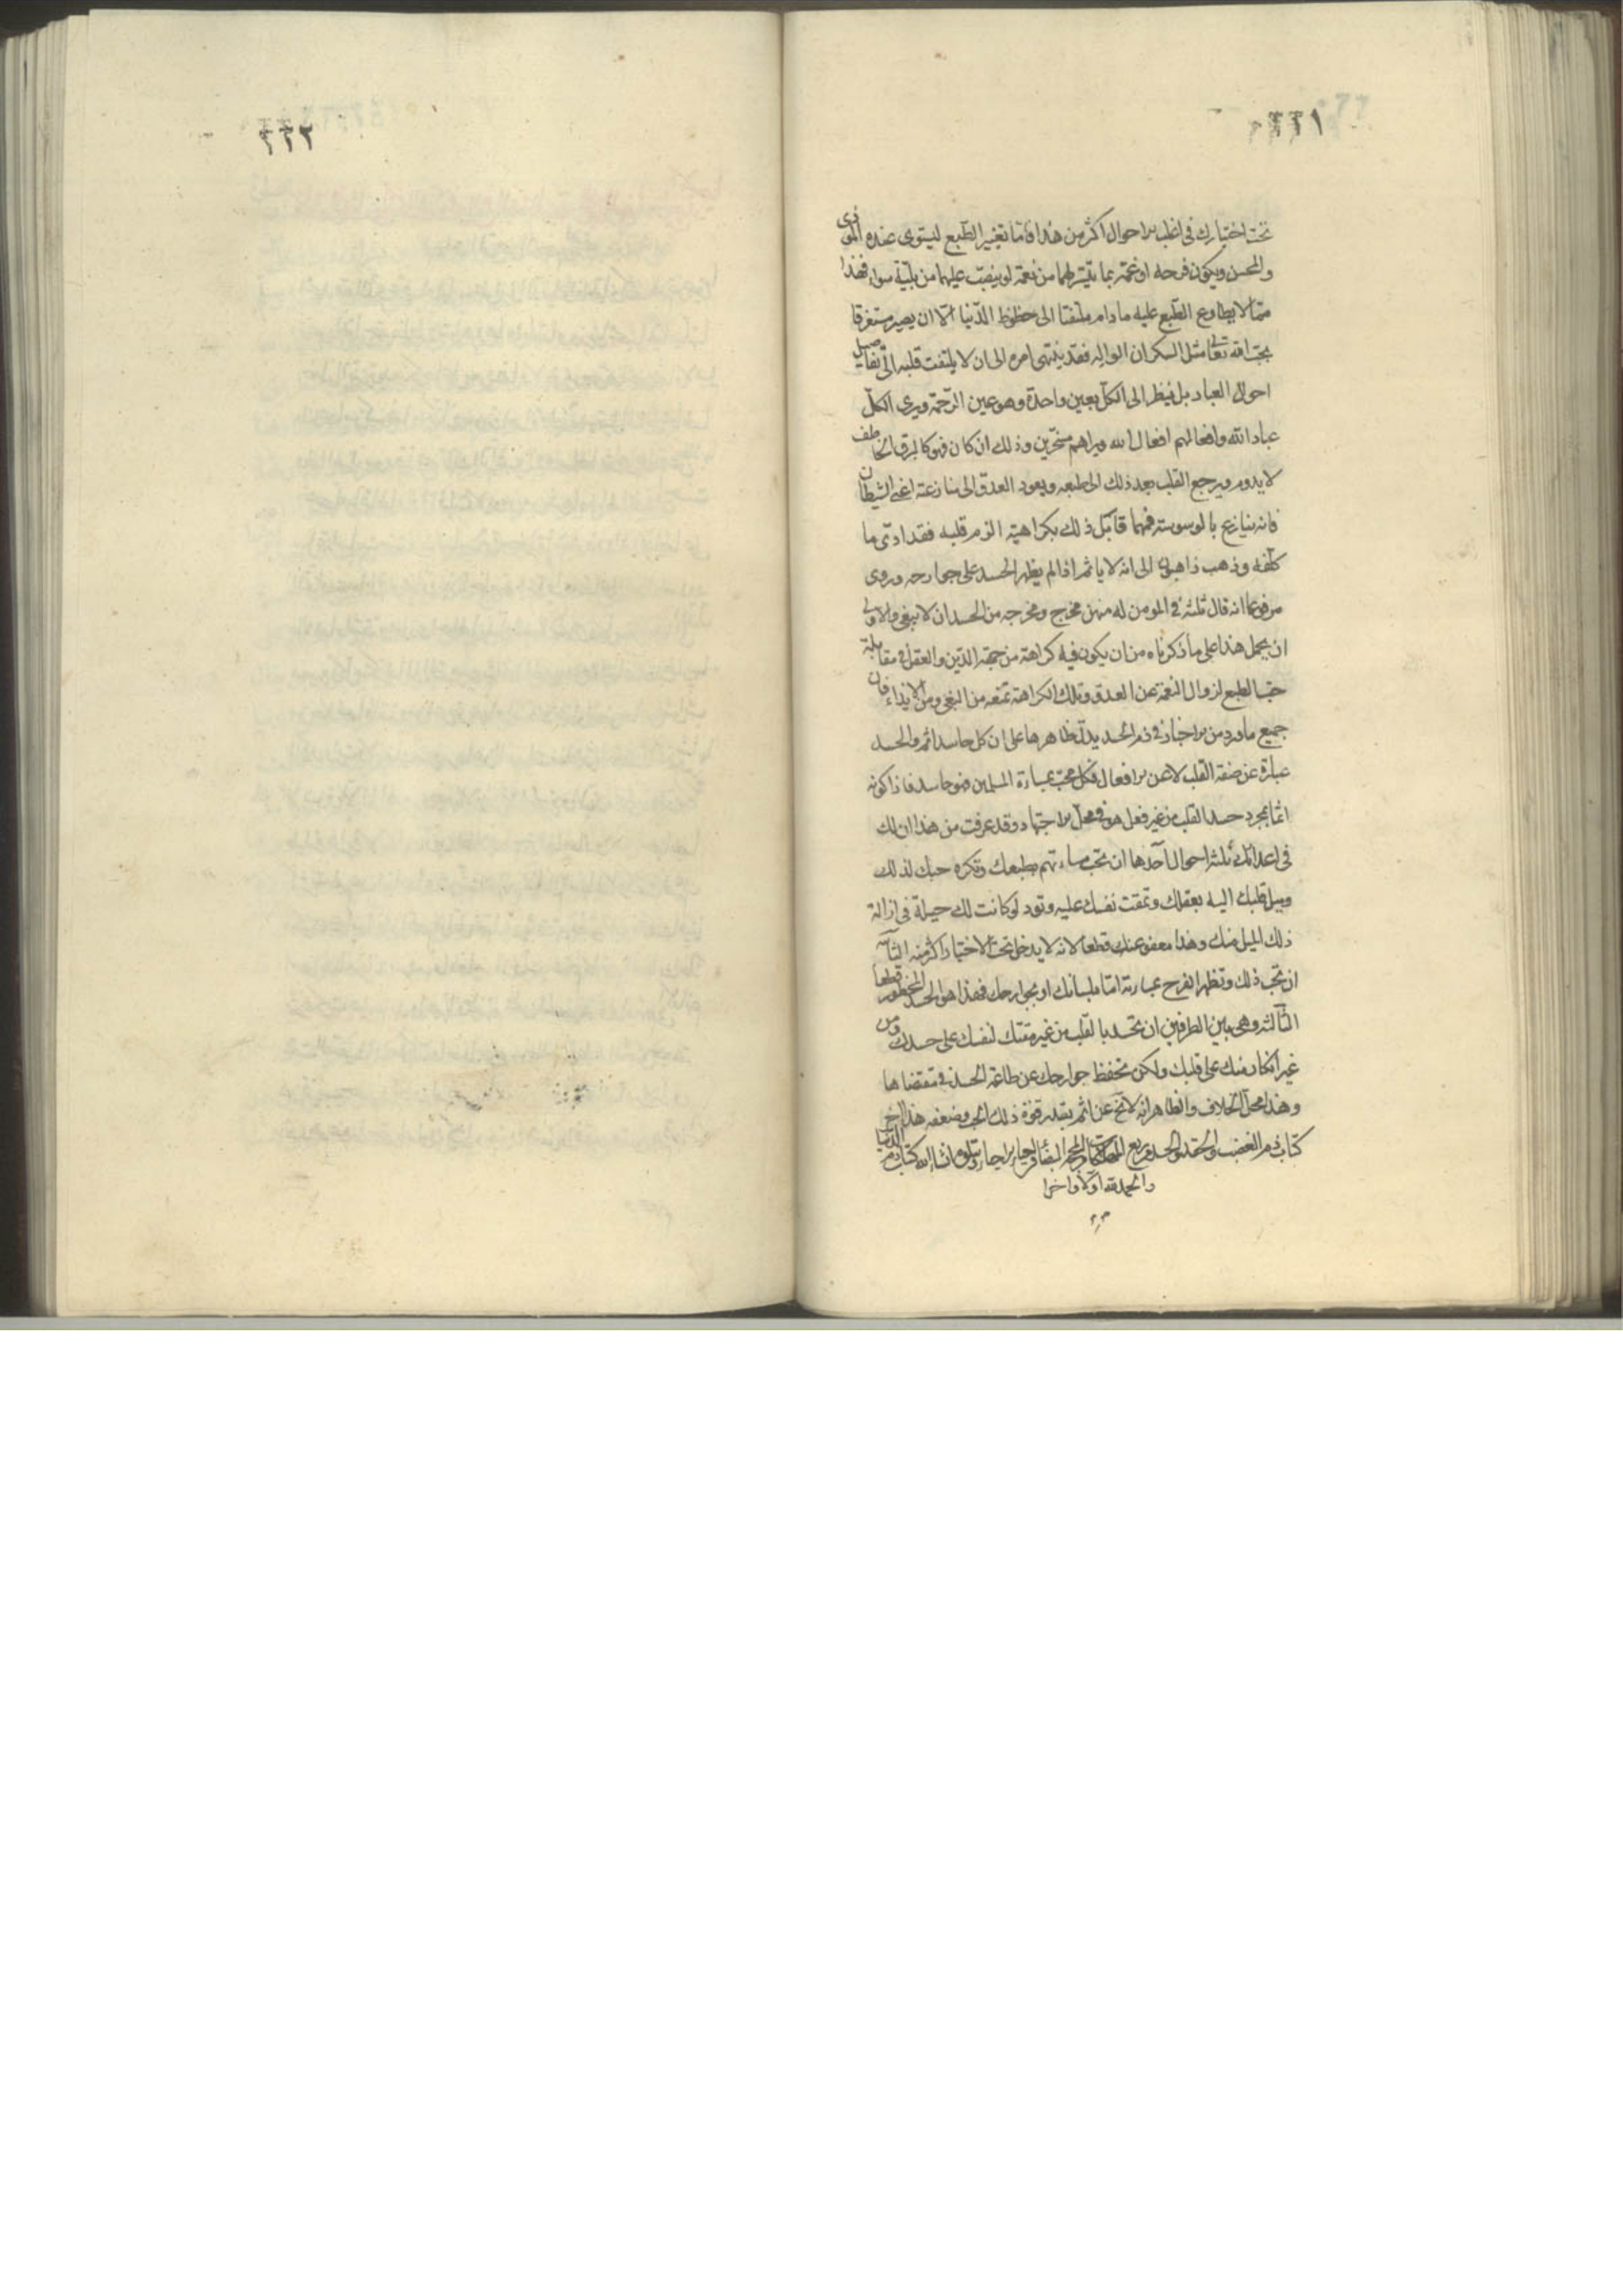 ٢٢١
تحت اختيارك فى اغلب الاحوال اكثر من هذا فاما تغيير الطبع ليستوى عنده الموذى
والمحسن ويكون فرحه او غمّه بما يتيسّر لهما من نعمة او ينصبّ عليهما من بليّة سواء فهذا
ممّا لا يطاوع الطبع عليه ما دام ملتفتا الى حظوظ الدّنيا الّا ان يصير مستغرقا
بحبّ الله تعالى مثل السكران الواله فقد ينتهى امره الى ان لا يلتفت قلبه الى تفاصيل
احوال العباد بل ينظر الى الكلّ بعين واحدة وهو عين الرّحمة ويرى الكلّ
عباد الله وافعالهم افعال الله ويراهم مسخّرين وذلك ان كان فهو كالبرق الخاطف
لا يدوم ويرجع القلب بعد ذلك الى طبعه ويعود العدوّ الى منازعته اعنى الشيطان
فانه ينازع بالوسوسة فمهما قابل ذلك بكراهية الزم قلبه فقد ادّى ما
كلّفه وذهب ذاهبون الى انه لا ياثم اذا لم يظهر الحسد على جوارحه وروى
مرفوعا انه قال ثلثة فى المومن له منهن مخرج ومخرجه من الحسد ان لا يبغى والاولى
ان يحمل هذا على ما ذكرناه من ان يكون فيه كراهة من جهة الدّين والعقل فى مقابلة
حبّ الطبع لزوال النعمة عن العدوّ وتلك الكراهة تمنعه من البغى ومن الايذاء فان
جميع ما ورد من الاخبار فى ذم الحسد يدلّ ظاهرها على ان كل حاسد اثم والحسد
عبارة عن صفة القلب لا عن الافعال فكل محبّ بمساءة المسلمين فهو حاسد فاذا كونه
اثما بمجرد حسد القلب من غير فعل هو فى محلّ الاجتهاد وقد عرفت من هذا ان لك
فى اعدائك ثلثة احوال احدها ان تحب مساءتهم بطبعك وتكره حبك لذلك
وميل قلبك اليه بعقلك وتمقت نفسك عليه وتود لو كانت لك حيلة فى ازالة
ذلك الميل منك وهذا معفو عنك قطعا لانه لا يدخل تحت الاختيار اكثر منه الثانية
ان تحب ذلك وتظهر الفرح بمساءته امّا بلسانك او بجوارحك فهذا هو الحسد المحظور قطعا
الثالثة وهى بين الطرفين ان تحسد بالقلب من غير مقتك لنفسك على حسدك ومن
غير انكار منك على قلبك ولكن تحفظ جوارحك عن طاعة الحسد فى مقتضاها
وهذا محلّ الخلاف والظاهر انه لا يخ عن اثم بقدر قوّة ذلك الحب وضعفه هذا اخر
كتاب ذم الغضب والحقد والحسد من ربع المهلكات من المحجّة البيضاء فى احياء الاحياء ويتلوه ان شاء الله كتاب ذم الدنيا
والحمد لله اوّلا واخرا
٢٢٢